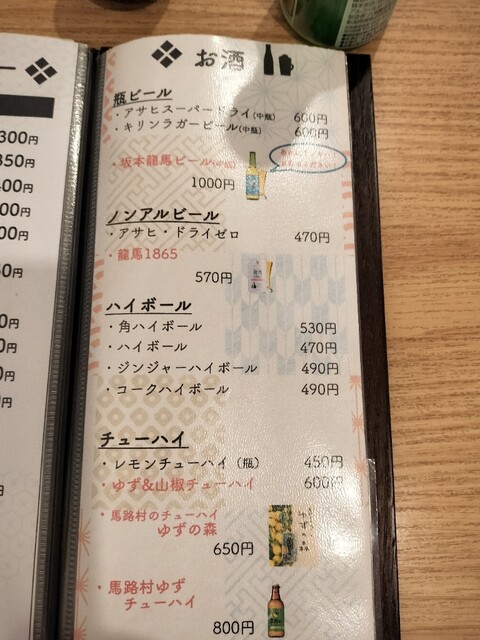 お酒
瓶ビール
・アサヒスーパードライ(中瓶) 600円
・キリンラガービール(中瓶) 600円
・坂本龍馬ビール(中瓶)
1000円
ノンアルビール
・アサヒ・ドライゼロ 470円
・龍馬1865
570円
ハイボール
・角ハイボール 530円
・ハイボール 470円
・ジンジャーハイボール 490円
・コークハイボール 490円
チューハイ
・レモンチューハイ（瓶） 450円
・ゆず&山椒チューハイ 600円
・馬路村のチューハイ
ゆずの森
650円
・馬路村ゆず
チューハイ
800円
300円
350円
400円